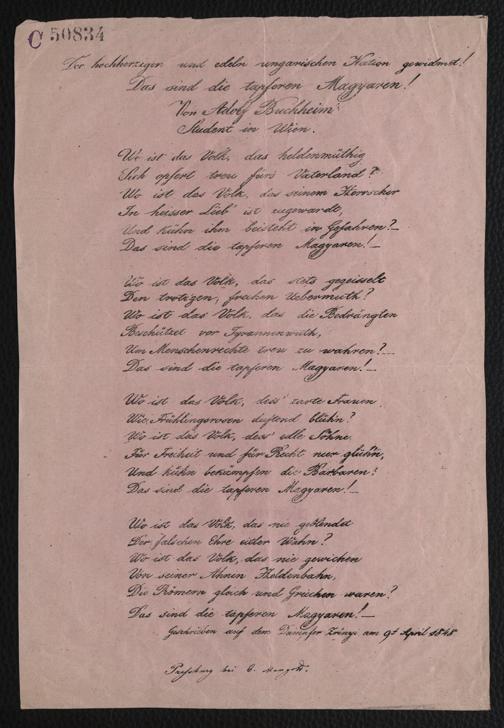 C 50834
Der hochherzigen und edeln ungarischen Nation gewidmet!
Das sind die tapferen Magyaren!
Von Adolf Buchheim
Student in Wien.
Wo ist das Volk, das heldenmüthig
Sich opfert treu fürs Vaterland?
Wo ist das Volk, das seinem Herrscher
In heisser Lieb' ist zugewandt,
Und kühn ihm beisteht in Gefahren?_
Das sind die tapferen Magyaren!_
Wo ist das Volk, das stets gegeisselt
Den trotzgen, frechen Uebermuth?
Wo ist das Volk, das die Bedrängten
Beschützet vor Tyrannenwuth,
Um Menschenrechte treu zu wahren?_
Das sind die tapferen Magyaren!_
Wo ist das Volk, dess' zarte Frauen
Wie Frühlingsrosen duftend blühn?
Wo ist das Volk, dess' edle Söhne
Für Freiheit und für Recht nur glühn,
Und kühn bekämpfen die Barbaren?
Das sind die tapferen Magyaren!_
Wo ist das Volk, das nie geblendet
Der falschen Ehre eitler Wahn?
Wo ist das Volk, das nie gewichen
Von seiner Ahnen Heldenbahn,
Die Römern gleich und Griechen waren?
Das sind die tapferen Magyaren!_
Geschrieben auf dem Dampfer Zrinyi am 9t April 1848
Pressburg bei